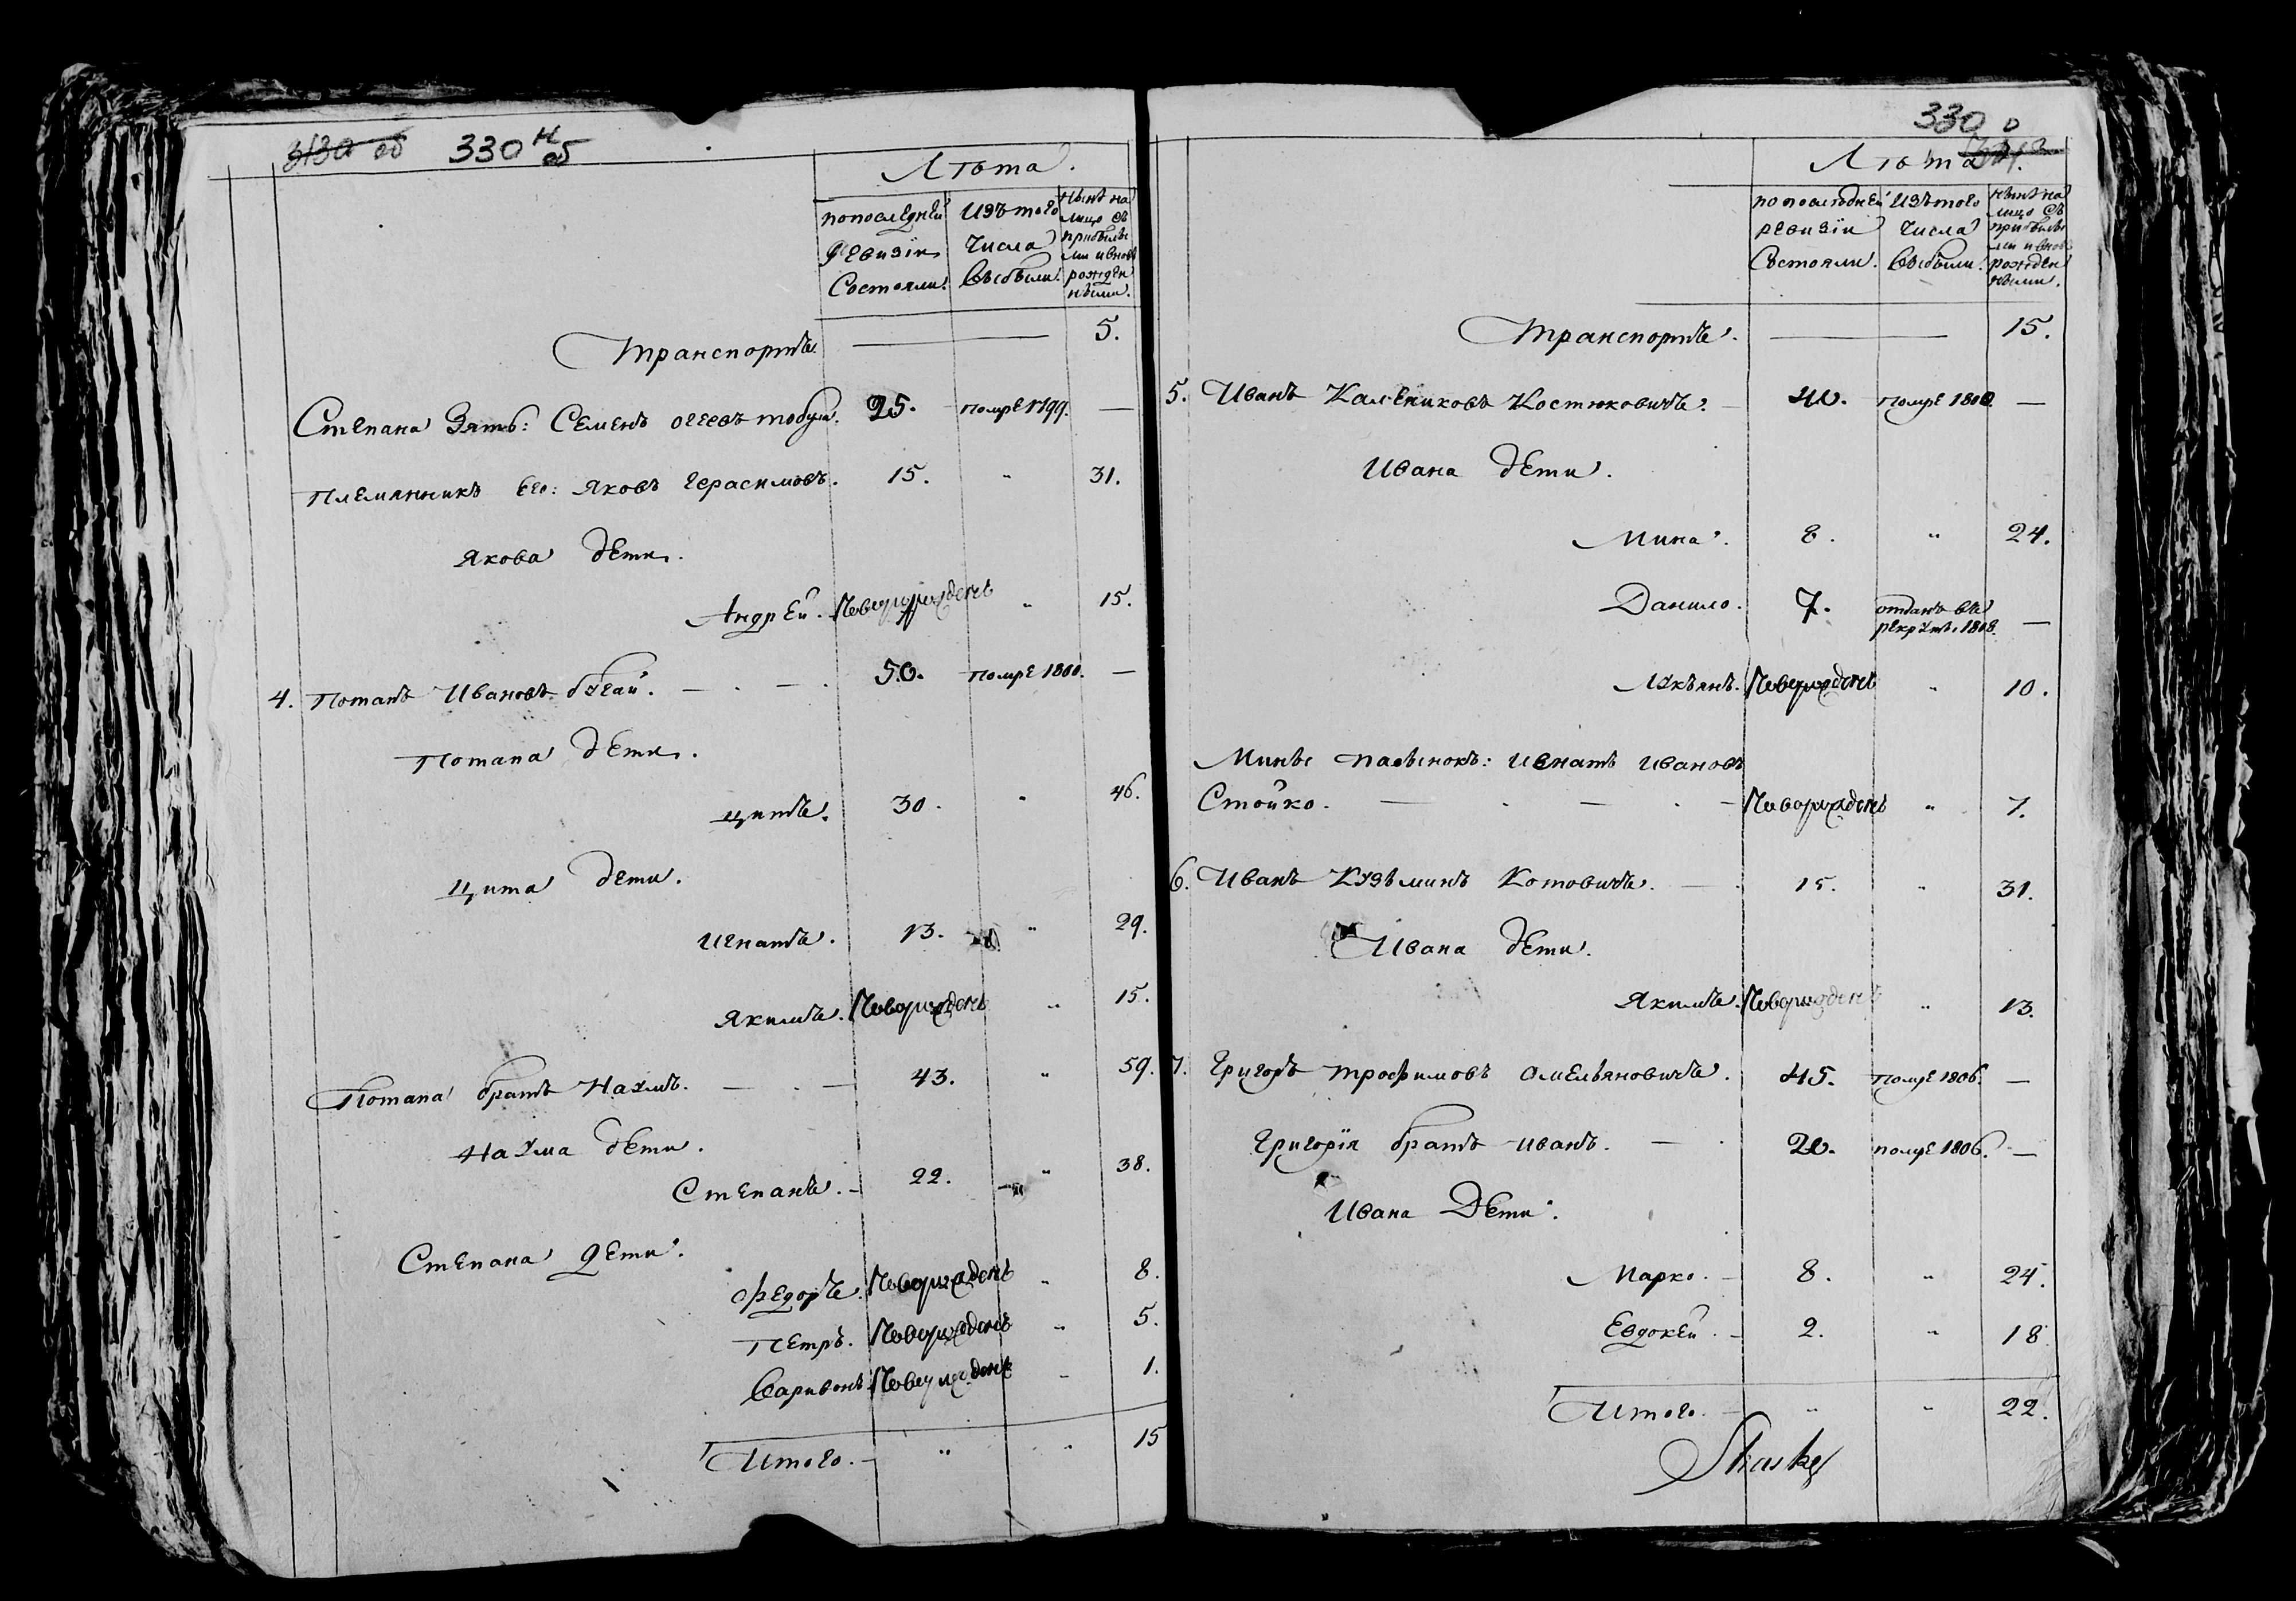 330 об 330 н об
Лѣта.
по последней ревизіи Состояли.
Изъ того Числа выбыли.
нынѣ на лицо съ прибылыми и вновь рожденными.
Транспортъ. — 5.
Степана Зять: Семенъ 25. помре 1799. —
Племянникъ его: Яковъ Герасимовъ. 15. " 31.
Якова дети.
Андрей. Новорожденъ " 15.
4. Потапъ Ивановъ бугай. — 50. помре 1800. —
Потапа дети.
цитъ. 30. " 46.
цита дети.
игнатъ. 13. " 29.
якимъ. Новорожденъ " 15.
Потапа братъ Наумъ. — 43. " 59.
Наума дети.
Степанъ. 22. " 38.
Степана дети.
Федоръ. Новорожденъ " 8.
Петръ. Новорожденъ " 5.
Саривонъ Новорожденъ " 1.
Итого. — " " 15
330 о
Лѣта.
по последней ревизіи Состояли.
Изъ того Числа выбыли.
нынѣ на лицо съ прибылыми и вновь рожденными.
Транспортъ. — 15.
5. Иванъ Калениковъ Костюковичъ. — 40. помре 1800 —
Ивана дети.
Мина. 8. " 24.
Данило. 7. отданъ въ
рекруты 1808. —
Лукьянъ. Новорожденъ " 10.
Мины пасынокъ: игнатъ ивановъ
Стойко. — Новорожденъ " 7.
6. Иванъ Кузьминъ Котовичъ. — 15. " 31.
Ивана дети.
якимъ. Новорожденъ " 13.
7. Григоръ трофимовъ омельяновичъ. 45. помре 1806. —
Григорія братъ иванъ. — 20. помре 1806. —
Ивана Дети.
Марко. — 8. " 24.
Евдокей. — 2. " 18
Итого. — " " 22.